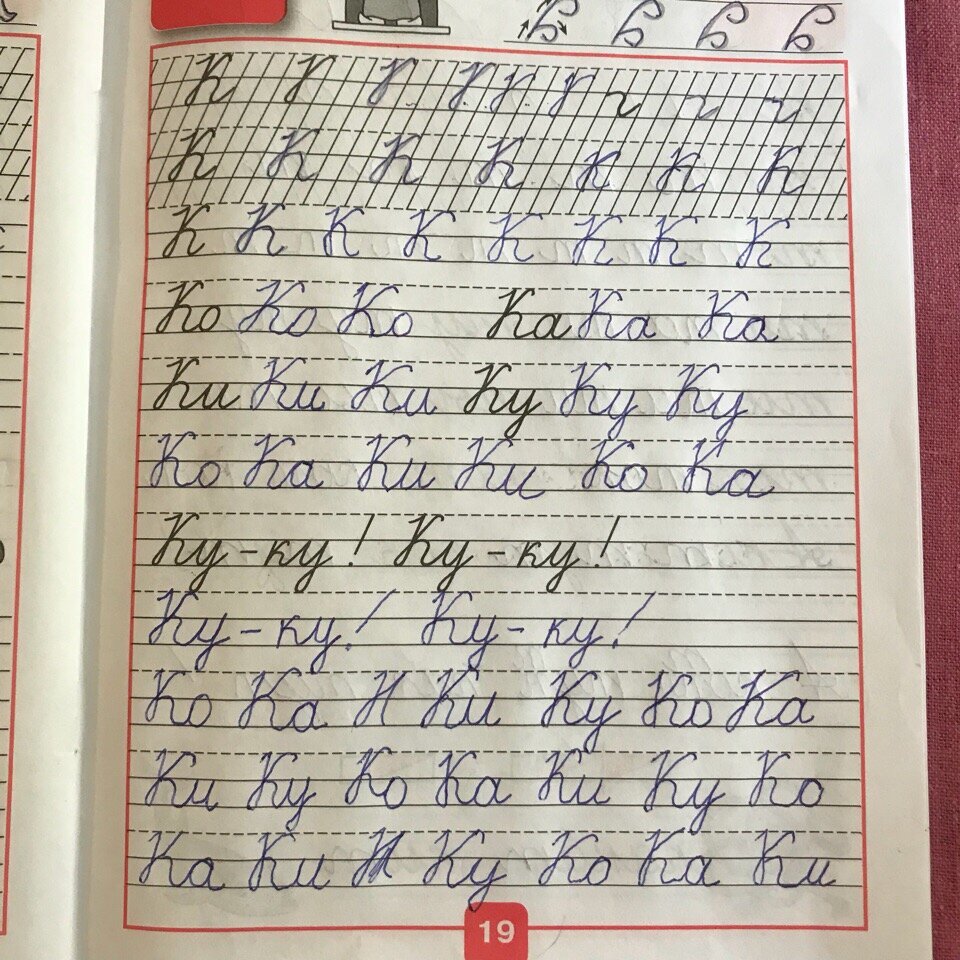 К К К К К К К
К К К К К К К К
Ко Ко Ко Ка Ка Ка
Ки Ки Ки Ку Ку Ку
Ко Ка Ки Ки Ко Ка
Ку-ку! Ку-ку!
Ку-ку! Ку-ку!
Ко Ка Н Ки Ку Ко Ка
Ки Ку Ко Ка Ки Ку Ко
Ка Ки Ку Ко Ка Ки
19